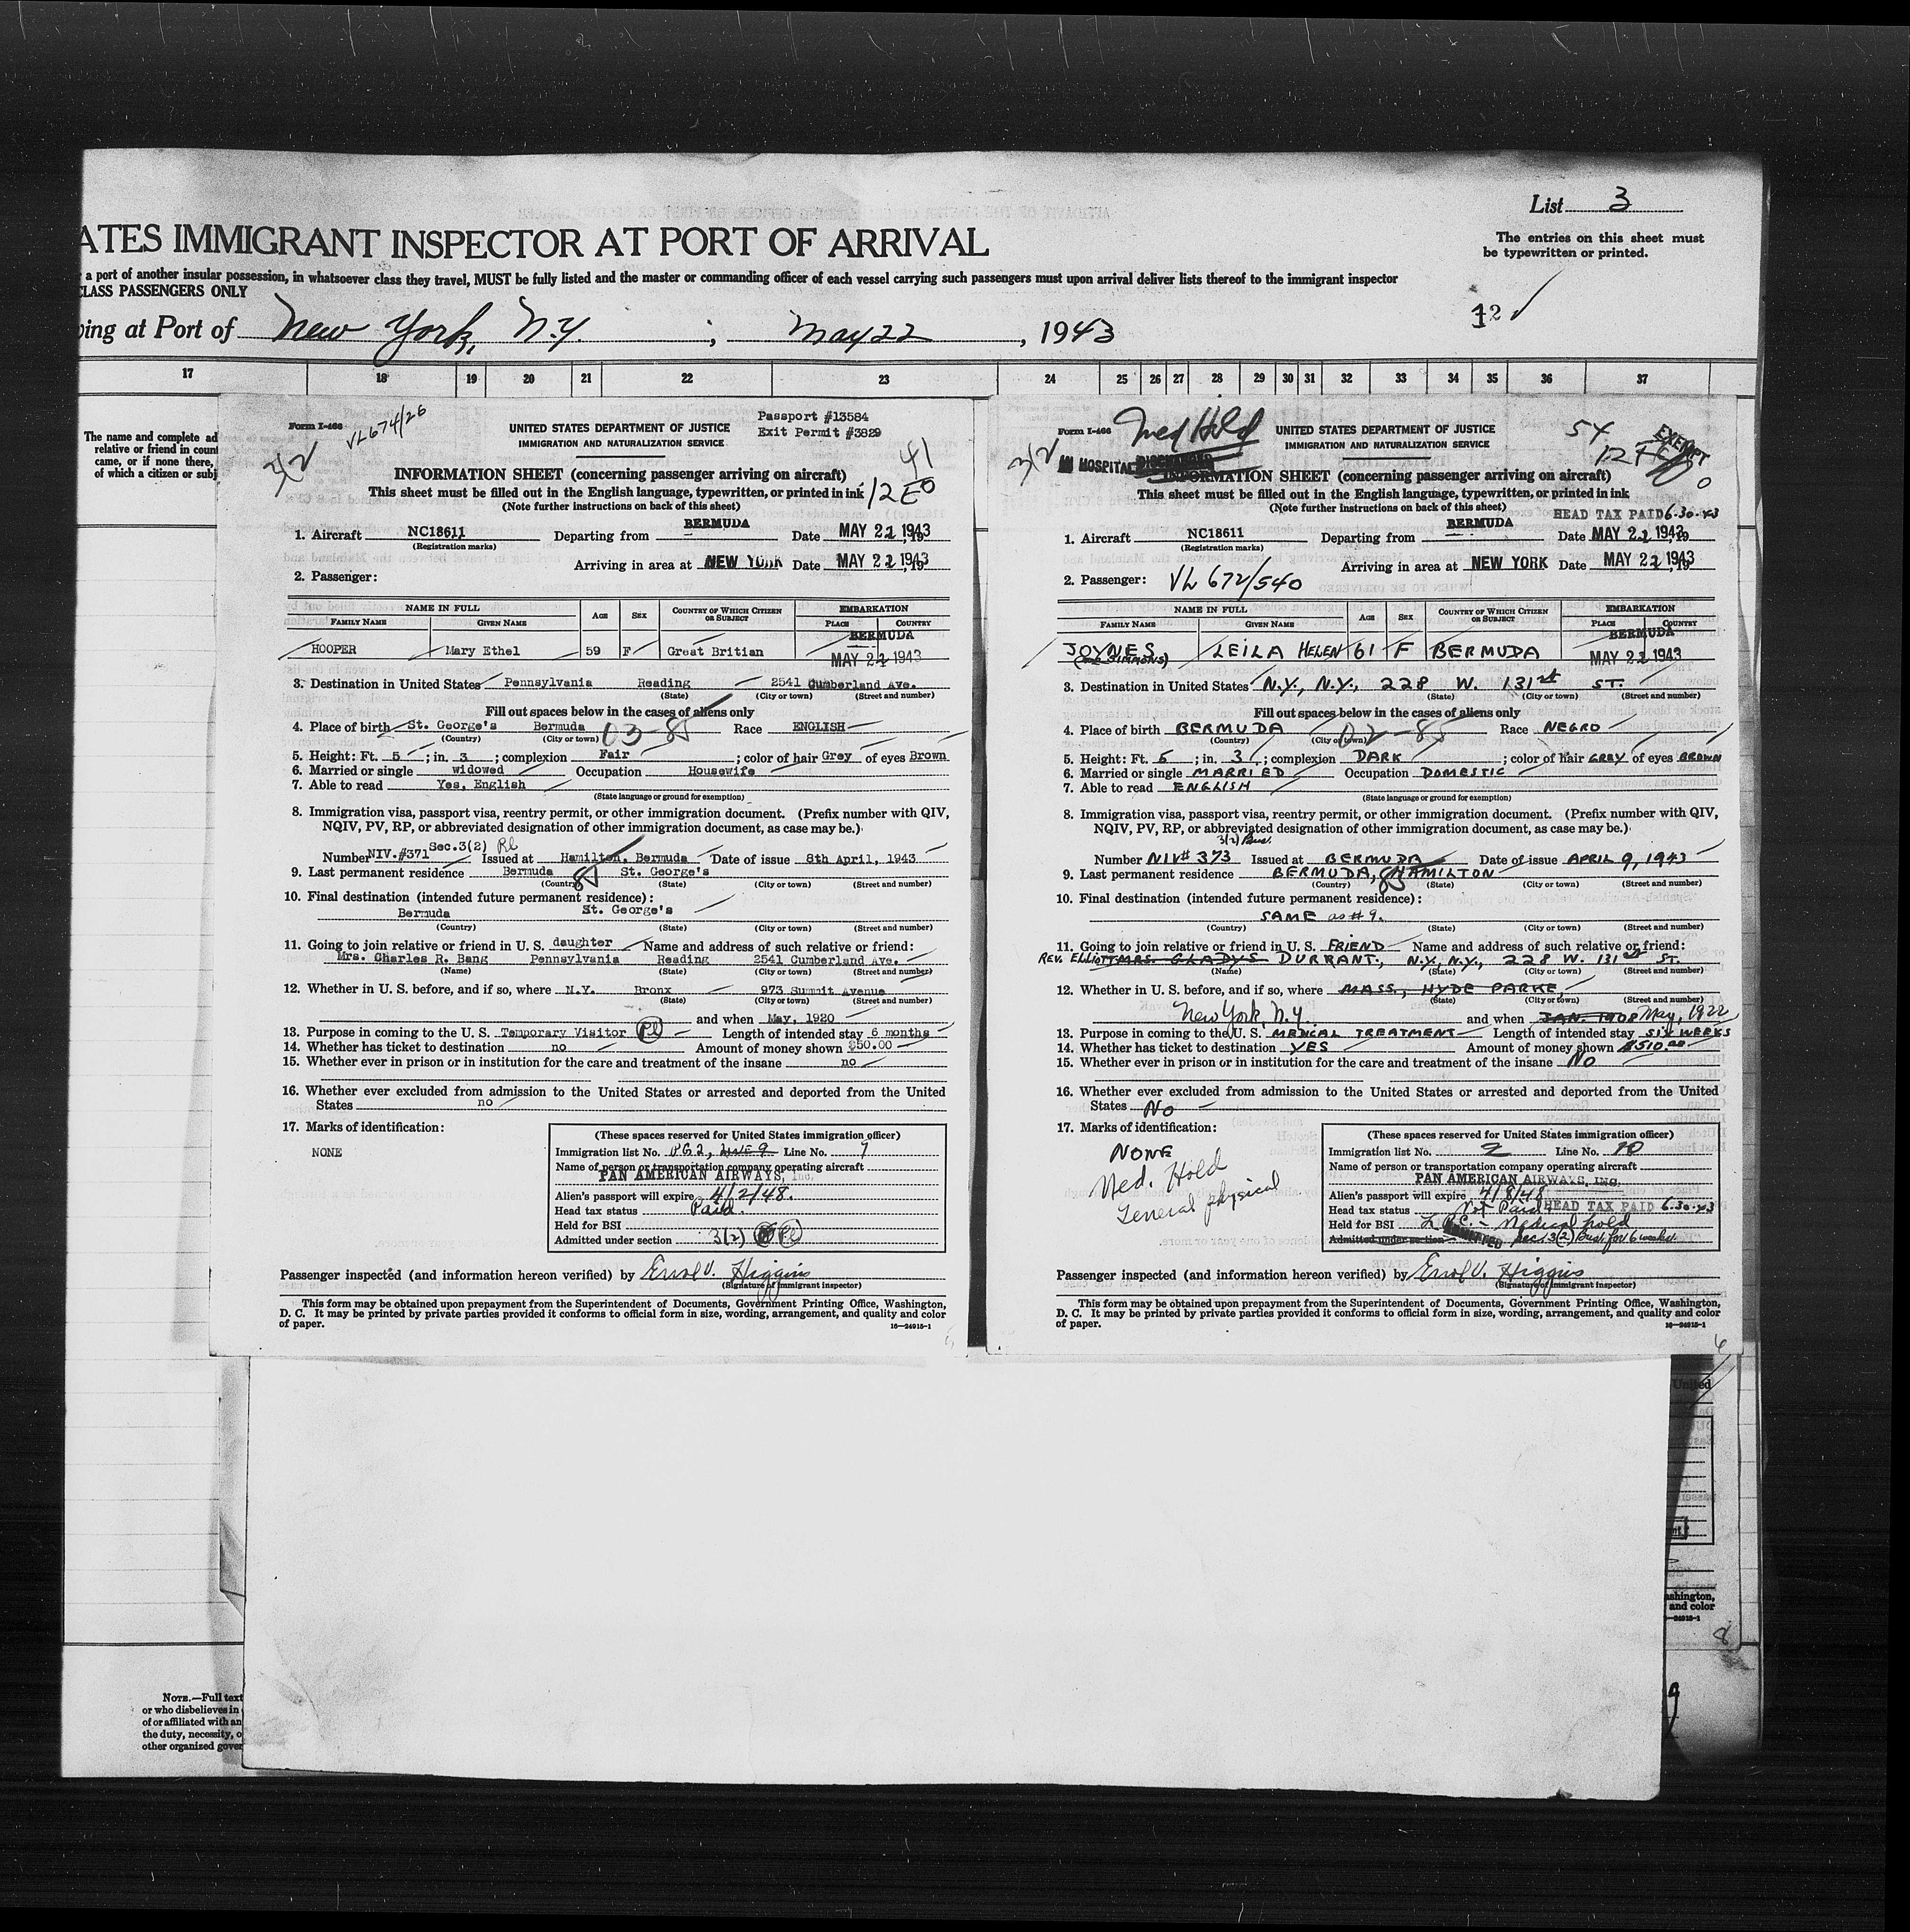 List 3
ATES IMMIGRANT INSPECTOR AT PORT OF ARRIVAL
The entries on this sheet must
be typewritten or printed.
a port of another insular possession, in whatsoever class they travel, MUST be fully listed and the master or commanding officer of each vessel carrying such passengers must upon arrival deliver lists thereof to the immigrant inspector
CLASS PASSENGERS ONLY
12
ing at Port of New York, N.Y. ; May 22 , 1943
17 18 19 20 21 22 23 24 25 26 27 28 29 30 31 32 33 34 35 36 37
The name and complete ad
relative or friend in count
came, or if none there,
of which a citizen or subj
Form I-466
VL674/26
Passport #13584
Exit Permit #3829
UNITED STATES DEPARTMENT OF JUSTICE
IMMIGRATION AND NATURALIZATION SERVICE
41
INFORMATION SHEET (concerning passenger arriving on aircraft)
This sheet must be filled out in the English language, typewritten, or printed in ink
(Note further instructions on back of this sheet)
1. Aircraft NC18611 Departing from BERMUDA Date MAY 22 1943
(Registration marks)
Arriving in area at NEW YORK Date MAY 22 1943
2. Passenger:
NAME IN FULL AGE SEX COUNTRY OF WHICH CITIZEN OR SUBJECT EMBARKATION
FAMILY NAME GIVEN NAME PLACE COUNTRY
BERMUDA
HOOPER Mary Ethel 59 F Great Britian MAY 22 1943
3. Destination in United States Pennsylvania Reading 2541 Cumberland Ave.
(State) (City or town) (Street and number)
Fill out spaces below in the cases of aliens only
4. Place of birth St. George's Bermuda 03-85 Race ENGLISH
(Country) (City or town)
5. Height: Ft. 5 ; in. 3 ; complexion Fair ; color of hair Grey of eyes Brown
6. Married or single widowed Occupation Housewife
7. Able to read Yes, English
(State language or ground for exemption)
8. Immigration visa, passport visa, reentry permit, or other immigration document. (Prefix number with QIV,
NQIV, PV, RP, or abbreviated designation of other immigration document, as case may be.)
Sec.3(2)
Number NIV.#371 Issued at Hamilton, Bermuda Date of issue 8th April, 1943
9. Last permanent residence Bermuda St. George's
(Country) (State) (City or town) (Street and number)
10. Final destination (intended future permanent residence):
Bermuda St. George's
(Country) (State) (City or town) (Street and number)
11. Going to join relative or friend in U. S. daughter Name and address of such relative or friend:
Mrs. Charles R. Bang Pennsylvania Reading 2541 Cumberland Ave.
(Name) (State) (City or town) (Street and number)
12. Whether in U. S. before, and if so, where N.Y. Bronx 973 Summit Avenue
(State) (City or town) (Street and number)
and when May, 1920
13. Purpose in coming to the U. S. Temporary Visitor Length of intended stay 6 months
14. Whether has ticket to destination no Amount of money shown $50.00
15. Whether ever in prison or in institution for the care and treatment of the insane no
16. Whether ever excluded from admission to the United States or arrested and deported from the United
States no
17. Marks of identification:
NONE
(These spaces reserved for United States immigration officer)
Immigration list No. PG 2, Line 9 Line No. 9
Name of person or transportation company operating aircraft
PAN AMERICAN AIRWAYS, Inc.
Alien's passport will expire 4/2/48.
Head tax status Paid
Held for BSI
Admitted under section 3(2)
Passenger inspected (and information hereon verified) by Errol V. Higgins
(Signature of immigrant inspector)
This form may be obtained upon prepayment from the Superintendent of Documents, Government Printing Office, Washington,
D. C. It may be printed by private parties provided it conforms to official form in size, wording, arrangement, and quality and color
of paper.
16—24915-1
Form I-466
Med Hold
UNITED STATES DEPARTMENT OF JUSTICE
IMMIGRATION AND NATURALIZATION SERVICE
54
EXEMPT
IN HOSPITAL
INFORMATION SHEET (concerning passenger arriving on aircraft)
This sheet must be filled out in the English language, typewritten, or printed in ink
(Note further instructions on back of this sheet)
HEAD TAX PAID 6-30-43
1. Aircraft NC18611 Departing from BERMUDA Date MAY 22 1943
(Registration marks)
Arriving in area at NEW YORK Date MAY 22 1943
2. Passenger: VL 672/540
NAME IN FULL AGE SEX COUNTRY OF WHICH CITIZEN OR SUBJECT EMBARKATION
FAMILY NAME GIVEN NAME PLACE COUNTRY
BERMUDA
JOYNES LEILA HELEN 61 F BERMUDA MAY 22 1943
(nee SIMMONS)
3. Destination in United States N.Y., N.Y., 228 W. 131st ST.
(State) (City or town) (Street and number)
Fill out spaces below in the cases of aliens only
4. Place of birth BERMUDA 02-85 Race NEGRO
(Country) (City or town)
5. Height: Ft. 5 ; in. 3 ; complexion DARK ; color of hair GREY of eyes BROWN
6. Married or single MARRIED Occupation DOMESTIC
7. Able to read ENGLISH
(State language or ground for exemption)
8. Immigration visa, passport visa, reentry permit, or other immigration document. (Prefix number with QIV,
NQIV, PV, RP, or abbreviated designation of other immigration document, as case may be.)
3(2) Bus.
Number NIV# 373 Issued at BERMUDA Date of issue APRIL 9, 1943
9. Last permanent residence BERMUDA, HAMILTON
(Country) (State) (City or town) (Street and number)
10. Final destination (intended future permanent residence):
SAME as # 9.
(Country) (State) (City or town) (Street and number)
11. Going to join relative or friend in U. S. FRIEND Name and address of such relative or friend:
REV. ELLIOTT MRS. GLADYS DURRANT., N.Y., N.Y., 228 W. 131st ST.
(Name) (State) (City or town) (Street and number)
12. Whether in U. S. before, and if so, where MASS., HYDE PARKE,
(State) (City or town) (Street and number)
New York, N.Y. and when JAN. 1908 May, 1922
13. Purpose in coming to the U. S. MEDICAL TREATMENT Length of intended stay SIX WEEKS
14. Whether has ticket to destination YES Amount of money shown $510.00
15. Whether ever in prison or in institution for the care and treatment of the insane NO
16. Whether ever excluded from admission to the United States or arrested and deported from the United
States NO
17. Marks of identification:
NONE
Med. Hold
General physical
(These spaces reserved for United States immigration officer)
Immigration list No. 2 Line No. 10
Name of person or transportation company operating aircraft
PAN AMERICAN AIRWAYS, INC.
Alien's passport will expire 4/8/48
Head tax status Not Paid HEAD TAX PAID 6-30-43
Held for BSI L.P.C. - Medical hold
Admitted under section ADMITTED Sec. 3(2) Bus. for 6 weeks.
Passenger inspected (and information hereon verified) by Errol V. Higgins
(Signature of immigrant inspector)
This form may be obtained upon prepayment from the Superintendent of Documents, Government Printing Office, Washington,
D. C. It may be printed by private parties provided it conforms to official form in size, wording, arrangement, and quality and color
of paper.
16—24915-1
6
United
ashington,
and color
—24915-1
8
9
NOTE.—Full text
or who disbelieves in
of or affiliated with an
the duty, necessity, o
other organized gover